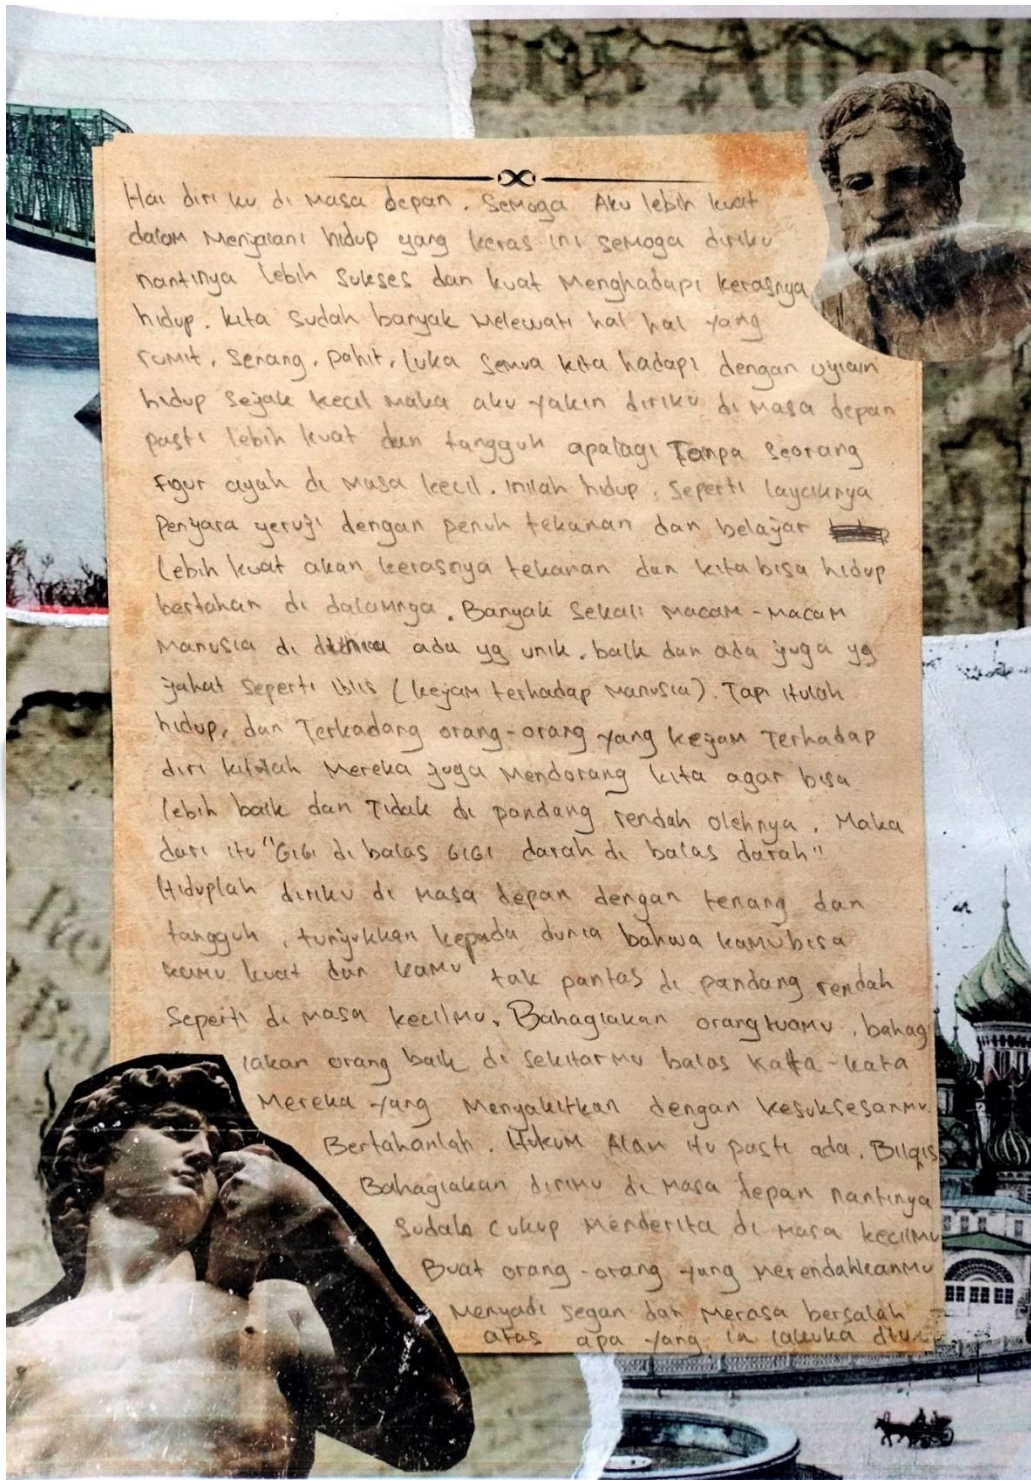 Los Angel
Hai diri ku di masa depan. Semoga Aku lebih kuat
dalam Menjalani hidup yang keras ini semoga diriku
nantinya lebih sukses dan kuat Menghadapi kerasnya
hidup. kita sudah banyak Melewati hal hal yang
rumit, senang, pahit, luka semua kita hadapi dengan ujian
hidup sejak kecil Maka aku yakin diriku di Masa depan
pasti lebih kuat dan tangguh apalagi Tanpa seorang
Figur ayah di Masa kecil. inilah hidup, seperti layaknya
penjara jeruji dengan penuh tekanan dan belajar
Lebih kuat akan kerasnya tekanan dan kita bisa hidup
bertahan di dalamnya. Banyak sekali Macam-Macam
Manusia di dunia ada yg unik, baik dan ada juga yg
jahat seperti iblis (kejam terhadap Manusia). Tapi itulah
hidup, dan Terkadang orang-orang yang kejam Terhadap
diri kitalah Mereka juga Mendorang kita agar bisa
lebih baik dan Tidak di pandang rendah olehnya. Maka
dari itu "GiGi di balas GiGi darah di balas darah"
Hiduplah diriku di Masa depan dengan tenang dan
tangguh, tunjukkan kepada dunia bahwa kamu bisa
kamu kuat dan kamu tak pantas di pandang rendah
Seperti di Masa kecilmu. Bahagiakan orangtuamu, bahag
iakan orang baik di sekitarmu balas kata-kata
Mereka yang Menyakitkan dengan kesuksesanmu.
Bertahanlah. Hukum Alam itu pasti ada. Bilqis
Bahagiakan dirimu di Masa depan nantinya
Sudah cukup Menderita di Masa kecilmu
Buat orang-orang yang Merendahkanmu
Menjadi segan dan Merasa bersalah
atas apa yang ia lakuka